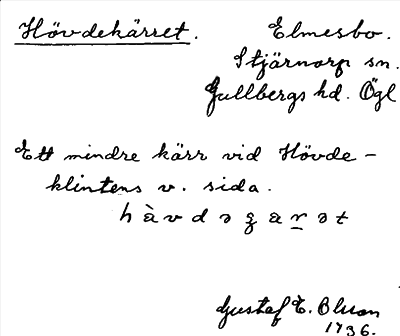 Hövdekärret. Elmesbo.
Stjärnorp sn.
Gullbergs hd. Ögl
Ett mindre kärr vid Hövde-
klintens v. sida.
h à v d ə ʒ a r ə t
Gustaf E. Olsson
1936.